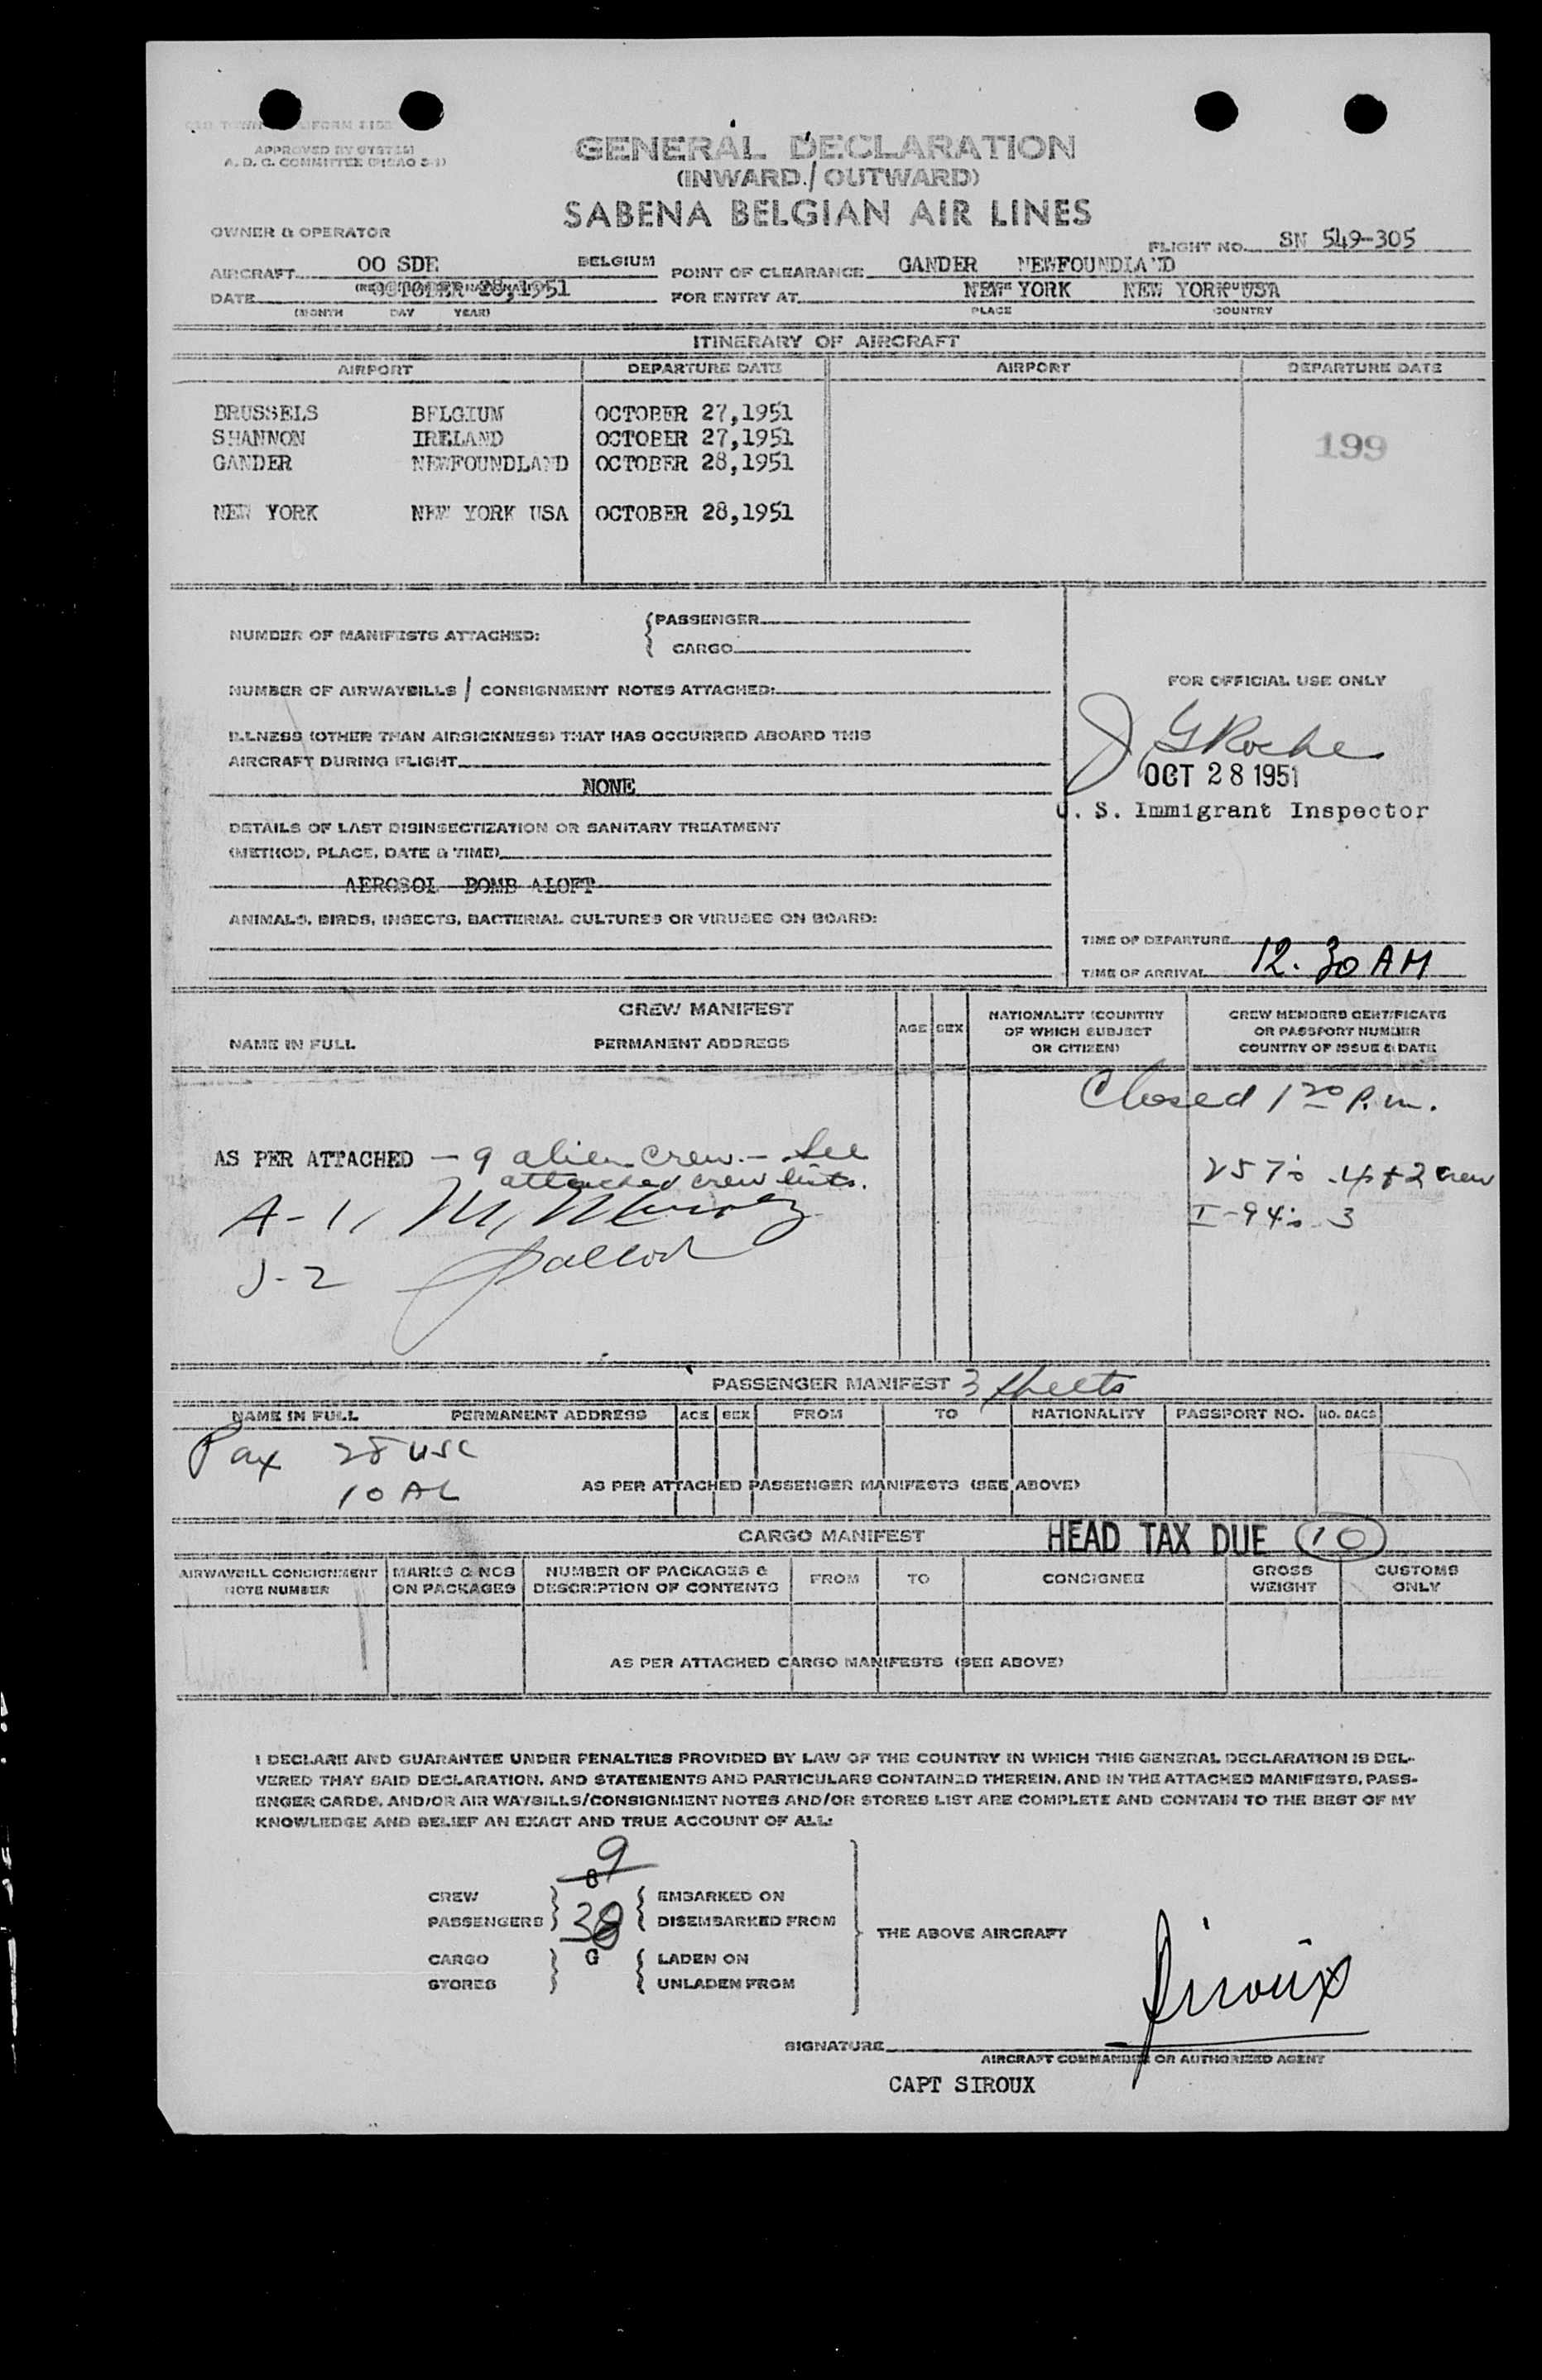 APPROVED BY SYSTEM
A. D. C. COMMITTEE (PICAO 2-1)
GENERAL DECLARATION
(INWARD / OUTWARD)
SABENA BELGIAN AIR LINES
OWNER & OPERATOR
FLIGHT NO. SN 549-305
AIRCRAFT OO SDE BELGIUM POINT OF CLEARANCE GANDER NEWFOUNDLAND
DATE OCTOBER 28,1951 FOR ENTRY AT NEW YORK NEW YORK USA
(MONTH DAY YEAR) PLACE COUNTRY
ITINERARY OF AIRCRAFT
AIRPORT DEPARTURE DATE AIRPORT DEPARTURE DATE
BRUSSELS BELGIUM OCTOBER 27,1951
SHANNON IRELAND OCTOBER 27,1951
199
GANDER NEWFOUNDLAND OCTOBER 28,1951
NEW YORK NEW YORK USA OCTOBER 28,1951
NUMBER OF MANIFESTS ATTACHED: PASSENGER
CARGO
NUMBER OF AIRWAYBILLS / CONSIGNMENT NOTES ATTACHED:
FOR OFFICIAL USE ONLY
ILLNESS (OTHER THAN AIRSICKNESS) THAT HAS OCCURRED ABOARD THIS
AIRCRAFT DURING FLIGHT
NONE
J G Roche
OCT 28 1951
U. S. Immigrant Inspector
DETAILS OF LAST DISINSECTIZATION OR SANITARY TREATMENT
(METHOD, PLACE, DATE & TIME)
AEROSOL BOMB ALOFT
ANIMALS, BIRDS, INSECTS, BACTERIAL CULTURES OR VIRUSES ON BOARD:
TIME OF DEPARTURE
TIME OF ARRIVAL 12.30 AM
CREW MANIFEST
NAME IN FULL PERMANENT ADDRESS
AGE SEX
NATIONALITY (COUNTRY
OF WHICH SUBJECT
OR CITIZEN)
CREW MEMBERS CERTIFICATE
OR PASSPORT NUMBER
COUNTRY OF ISSUE & DATE
Closed 1 20 P.m.
AS PER ATTACHED - 9 alien crew - See
attached crew lists.
257's 4 + 2 crew
I-94's 3
A-1, M,
J-2
PASSENGER MANIFEST 3 sheets
NAME IN FULL PERMANENT ADDRESS AGE SEX FROM TO NATIONALITY PASSPORT NO. NO. BAGS
Pax 28 USC
10 AL
AS PER ATTACHED PASSENGER MANIFESTS (SEE ABOVE)
CARGO MANIFEST
HEAD TAX DUE 10
AIRWAYBILL CONSIGNMENT
NOTE NUMBER
MARKS & NOS
ON PACKAGES
NUMBER OF PACKAGES &
DESCRIPTION OF CONTENTS
FROM TO CONSIGNEE
GROSS
WEIGHT
CUSTOMS
ONLY
AS PER ATTACHED CARGO MANIFESTS (SEE ABOVE)
I DECLARE AND GUARANTEE UNDER PENALTIES PROVIDED BY LAW OF THE COUNTRY IN WHICH THIS GENERAL DECLARATION IS DEL-
VERED THAT SAID DECLARATION, AND STATEMENTS AND PARTICULARS CONTAINED THEREIN, AND IN THE ATTACHED MANIFESTS, PASS-
ENGER CARDS, AND/OR AIR WAYBILLS/CONSIGNMENT NOTES AND/OR STORES LIST ARE COMPLETE AND CONTAIN TO THE BEST OF MY
KNOWLEDGE AND BELIEF AN EXACT AND TRUE ACCOUNT OF ALL:
9
8
CREW EMBARKED ON
PASSENGERS 38 DISEMBARKED FROM
THE ABOVE AIRCRAFT
CARGO G LADEN ON
STORES UNLADEN FROM
Siroux
SIGNATURE
AIRCRAFT COMMANDER OR AUTHORIZED AGENT
CAPT SIROUX